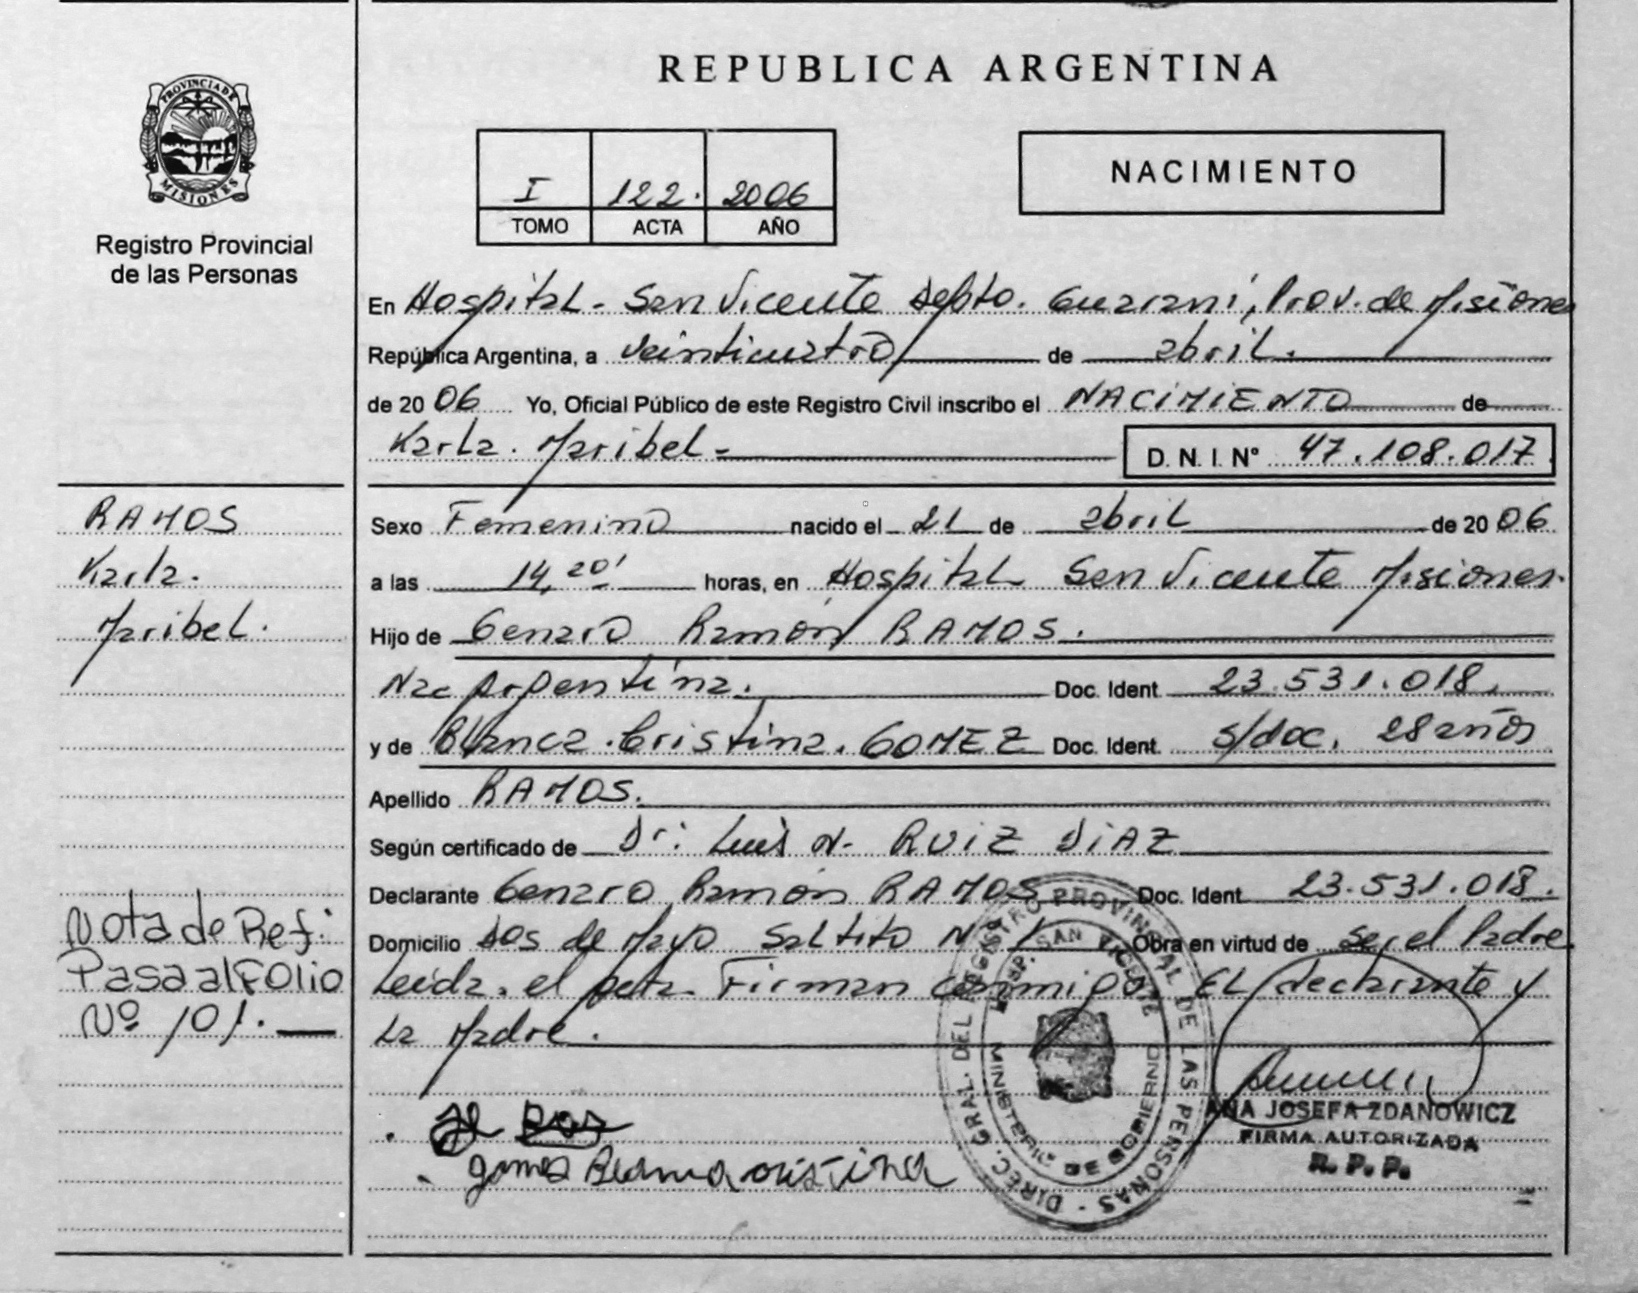 REPUBLICA ARGENTINA
PROVINCIA DE
MISIONES
Registro Provincial
de las Personas
I 122. 2006
TOMO ACTA AÑO
NACIMIENTO
En Hospital - San Vicente depto. Guarani, Prov. de Misiones
República Argentina, a veinticuatro de abril.
de 20 06 Yo, Oficial Público de este Registro Civil inscribo el NACIMIENTO de
Karla. Maribel = D. N. I. N° 47.108.017
RAMOS
Karla.
Maribel.
Sexo Femenino nacido el 21 de abril de 20 06
a las 14,20' horas, en Hospital San Vicente Misiones.
Hijo de Genaro Ramón RAMOS.
Nac Argentina. Doc. Ident. 23.531.018.
y de Blanca. Cristina. GOMEZ Doc. Ident. s/doc. 28 años
Apellido RAMOS.
Según certificado de Dr: Luis N. RUIZ DIAZ
Declarante Genaro Ramón RAMOS Doc. Ident. 23.531.018.
Domicilio dos de Mayo Saltito Nº 1 Obra en virtud de ser el Padre
Leida. el acta Firman conmigo. EL declarante y
La Madre.
Nota de Ref:
Pasa al Folio
Nº 101.
gomes Blanca cristina
DIREC. GRAL. DEL REGISTRO PROVINCIAL DE LAS PERSONAS -
HOSP. SAN VICENTE
MINISTERIO DE GOBIERNO
ANA JOSEFA ZDANOWICZ
FIRMA AUTORIZADA
R. P. P.